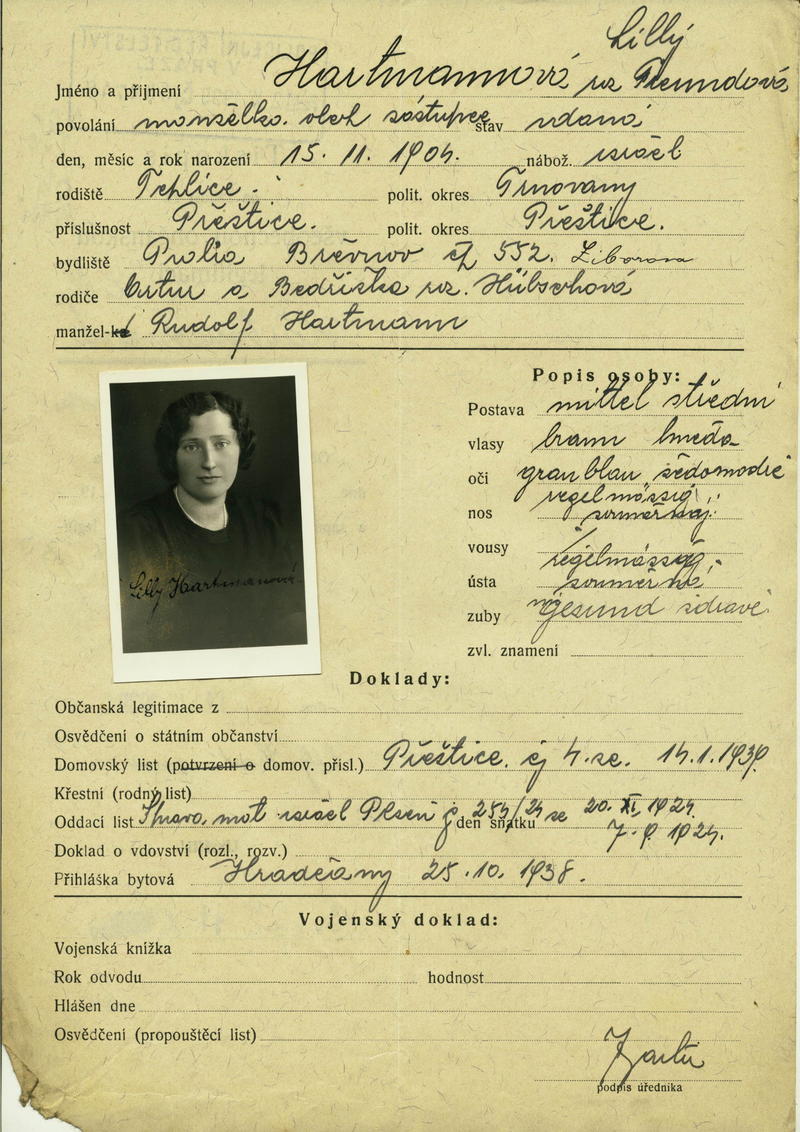 Lilly
Jméno a příjmení Hartmannová roz. Freundová
povolání manželka obch zástupce stav vdaná
den, měsíc a rok narození 15. 11. 1904. nábož. israel
rodiště Teplice. polit. okres Trnovany
příslušnost Přeštice. polit. okres Přeštice.
bydliště Praha Břevnov čp 552. Liborova
rodiče Artur a Bedřiška roz. Hübschová
manžel-ka Rudolf Hartmann
Popis osoby:
Postava mittel střední
vlasy braun hnědé
oči graublau šedomodré
regelmässig,
nos souměrný
vousy
regelmässig,
ústa souměrné
zuby gesund zdravé
zvl. znamení
Lilly Hartmanová
Doklady:
Občanská legitimace z
Osvědčení o státním občanství
Domovský list (potvrzení o domov. přísl.) Přeštice. čj 4. ze. 14.1.1939
Křestní (rodný list)
Oddací list mat israel Plzeň 254/24 ze 20. XI. 1924.
den sňatku 7. 9. 1924.
Doklad o vdovství (rozl., rozv.)
Přihláška bytová Hradčany 25. 10. 1938.
Vojenský doklad:
Vojenská knížka
Rok odvodu hodnost
Hlášen dne
Osvědčení (propouštěcí list)
podpis úředníka